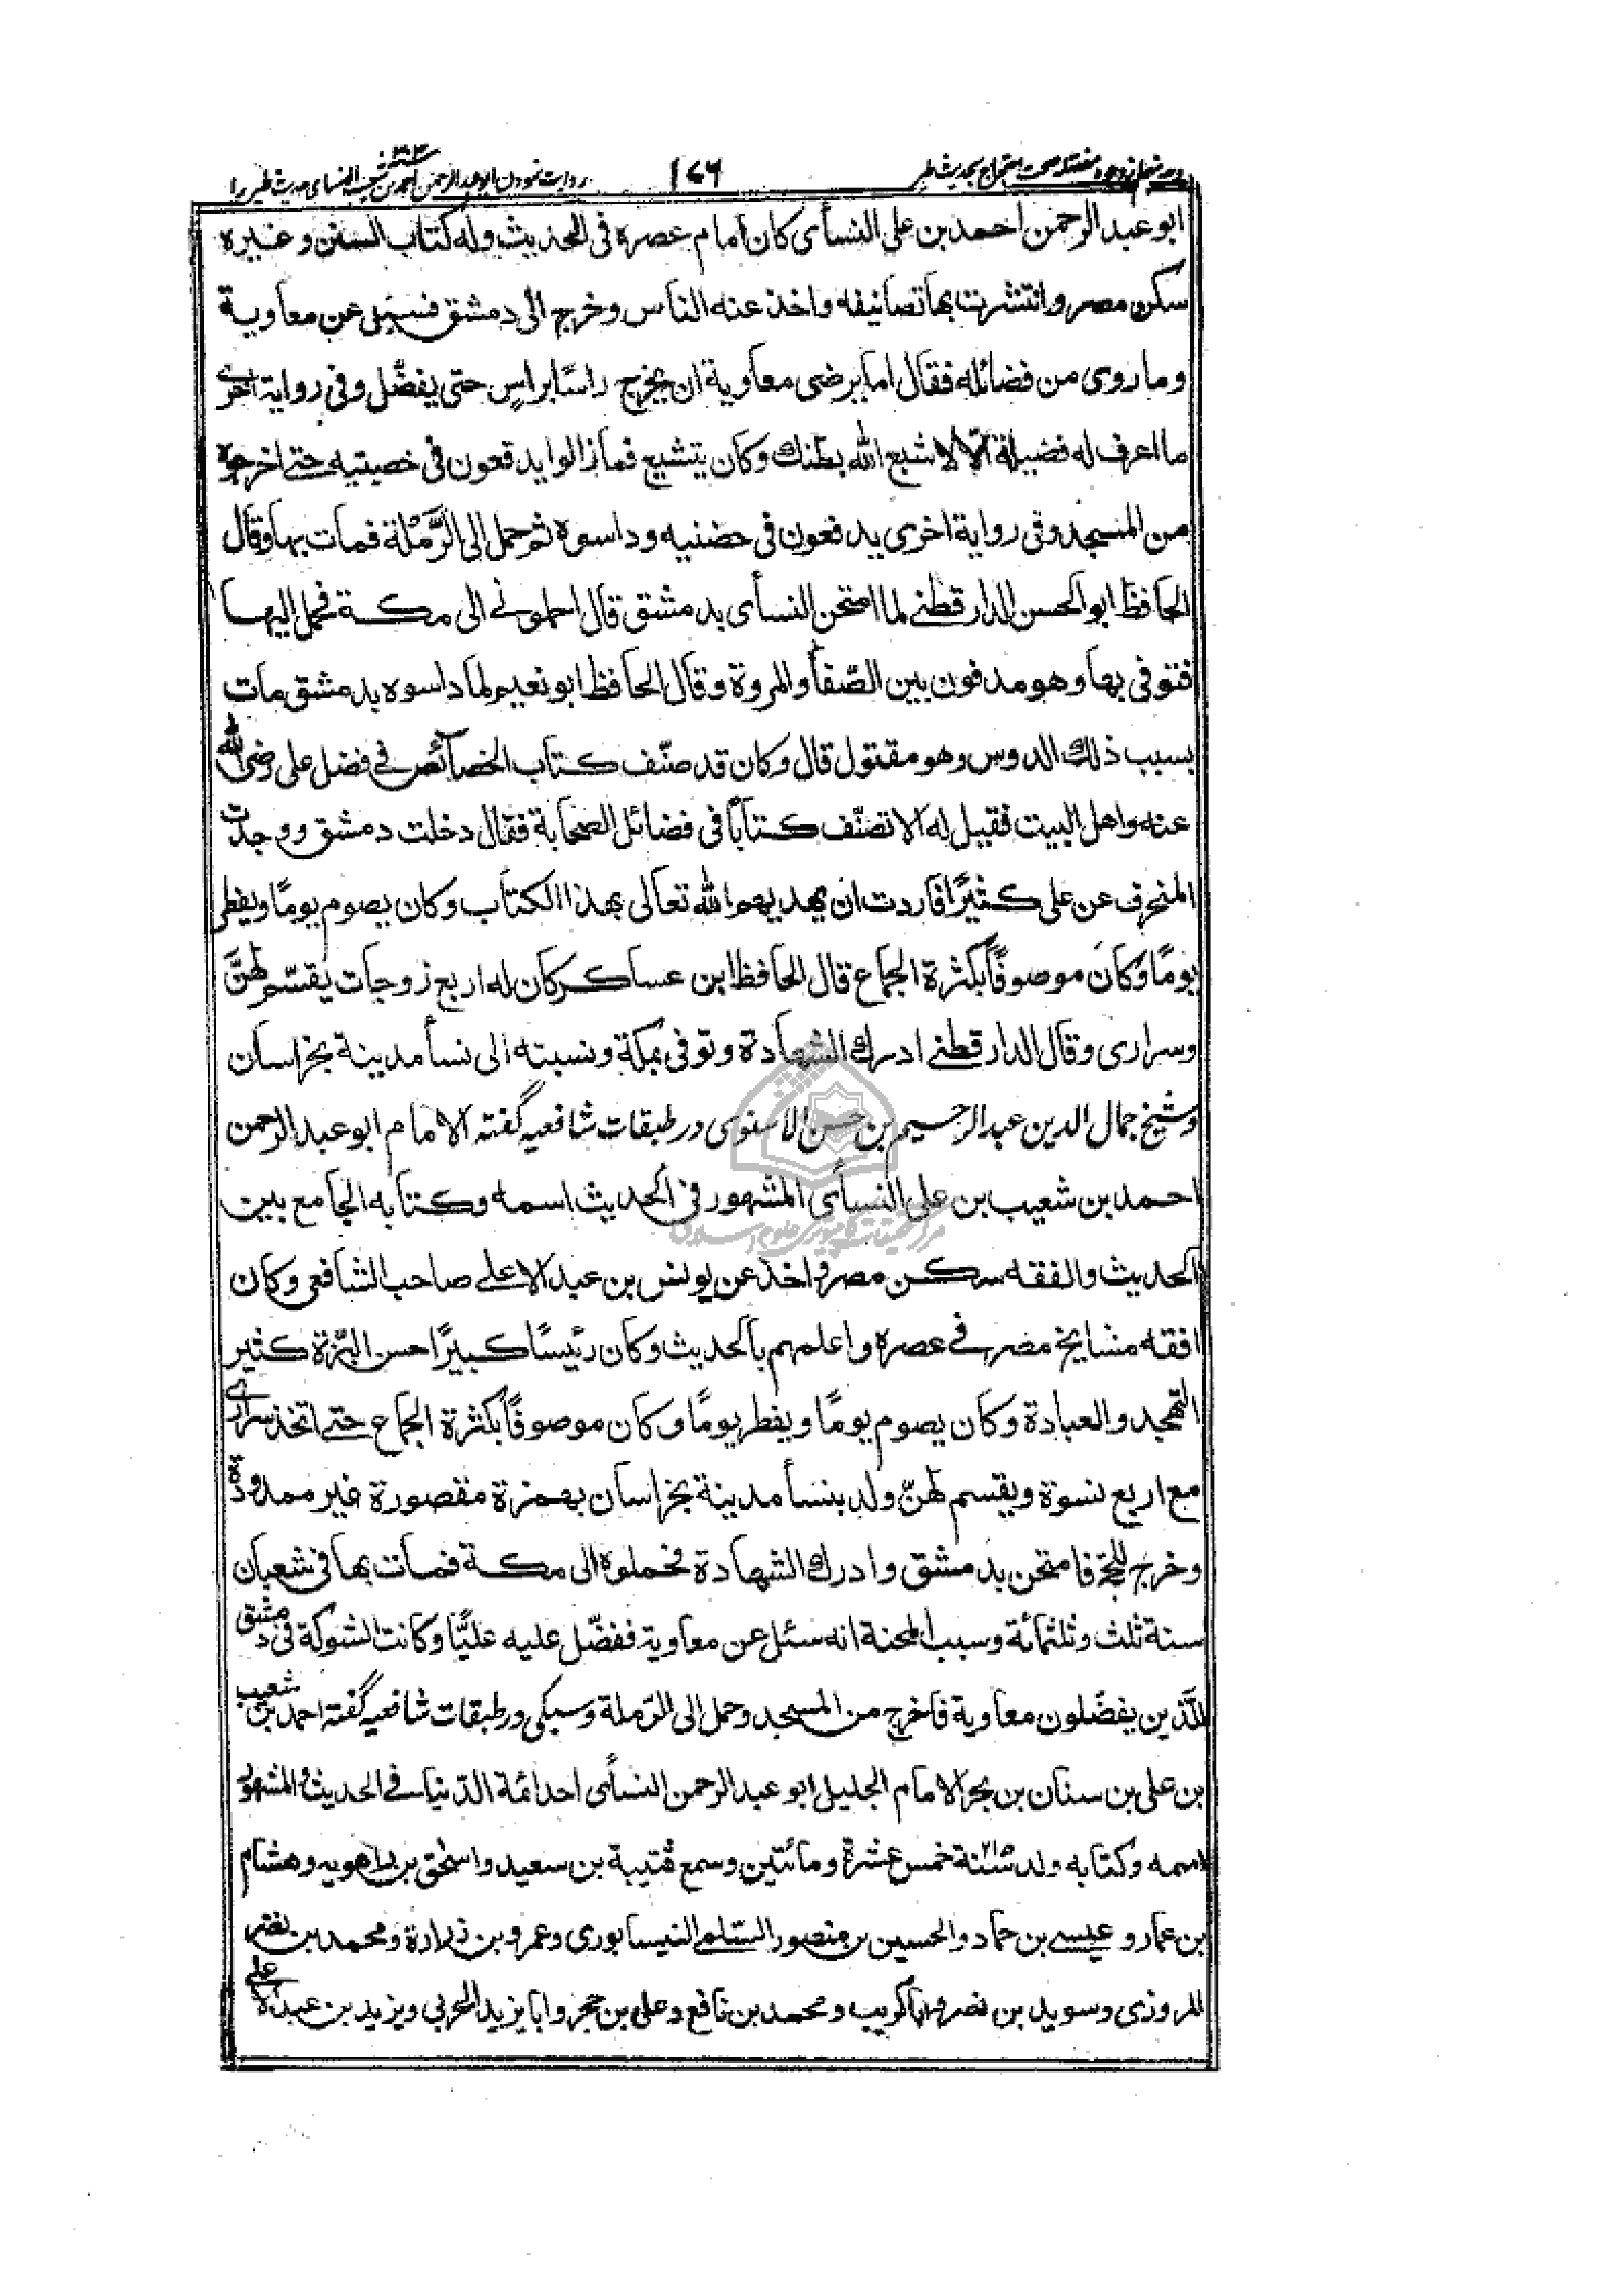 ۱۷۶
روایت نمودن ابو عبد الرحمن احمد بن شعیب النسائی حدیث طیر را
ابو عبد الرحمن احمد بن علی النسأی کان امام عصره فی الحدیث وله کتاب السنن و غیره
سکن مصر وانتشرت بها تصانیفه واخذ عنه الناس وخرج الی دمشق فسئل عن معاویة
وما روی من فضائله فقال اما یرضی معاویة ان یخرج راسًا براسٍ حتی یفضّل وفی روایة اخری
ما اعرف له فضیلة الّا لا اشبع الله بطنك وکان یتشیع فمازالوا یدفعون فی خصیتیه حتے اخرجوه
من المسجد وفی روایة اخری یدفعون فی حضنیه وداسوه ثم حمل الی الرَّمْلة فمات بها وقال
الحافظ ابو الحسن الدارقطنے لما امتحن النسأی بدمشق قال احملونے الی مکة فحمل الیها
فتوفی بها وهو مدفون بین الصّفا والمروة وقال الحافظ ابو نعیم لما داسوه بدمشق مات
بسبب ذلك الدوس وهو مقتول قال وکان قد صنّف کتاب الخصائص فے فضل علی رضی الله
عنه واهل البیت فقیل له الا تصنّف کتابًا فی فضائل الصحابة فقال دخلت دمشق ووجدت
المنحرف عن علی کثیرًا فاردت ان یهدیهم الله تعالی بهذا الکتاب وکان یصوم یومًا ویفطر
یومًا وکان موصوفًا بکثرة الجماع قال الحافظ ابن عساکر کان له اربع زوجات یقسّم لهنَّ
وسراری وقال الدارقطنے ادرك الشهادة وتوفی بمکة ونسبته الی نسأ مدینة بخراسان
وشیخ جمال الدین عبد الرحیم بن حسن الاسنوی در طبقات شافعیه گفته الامام ابو عبد الرحمن
احمد بن شعیب بن علی النسأی المشهور فی الحدیث اسمه وکتابه الجامع بین
الحدیث والفقه سکن مصر واخذ عن یونس بن عبد الاعلے صاحب الشافعی وکان
افقه مشایخ مصر فے عصره واعلمهم بالحدیث وکان رئیسًا کبیرًا حسن البزّة کثیر
التهجد والعبادة وکان یصوم یومًا ویفطر یومًا وکان موصوفًا بکثرة الجماع حتے اتخذ سراری
مع اربع نسوة ویقسم لهنّ ولد بنسأ مدینة بخراسان بهمزة مقصورة غیر ممدودة
وخرج للحجّ فامتحن بدمشق وادرك الشهادة فحملوه الی مکة فمات بها فی شعبان
سنة ثلث وثلثمائة وسبب المحنة انه سئل عن معاویة ففضّل علیه علیًّا وکانت الشوکة فی دمشق
للّذین یفضّلون معاویة فاخرج من المسجد وحمل الی الرّملة وسبکی در طبقات شافعیه گفته احمد بن شعیب
بن علی بن سنان بن بحر الامام الجلیل ابو عبد الرحمن النسأی احد ائمة الدّنیا فے الحدیث والمشهور
اسمه وکتابه ولد سنة ۲۱۵ خمس عشرة ومائتین وسمع قتیبة بن سعید واسحق بن راهویه وهشام
بن عمار وعیسے بن حماد والحسین بن منصور السّلمے النیسابوری وعمرو بن زرارة ومحمد بن نصر
المروزی وسوید بن نصر وابا کریب ومحمد بن نافع وعلی بن حجر وابا یزید الجرمی ویزید بن عبد الاعلی
مرکز تحقیقات کامپیوتری علوم اسلامی